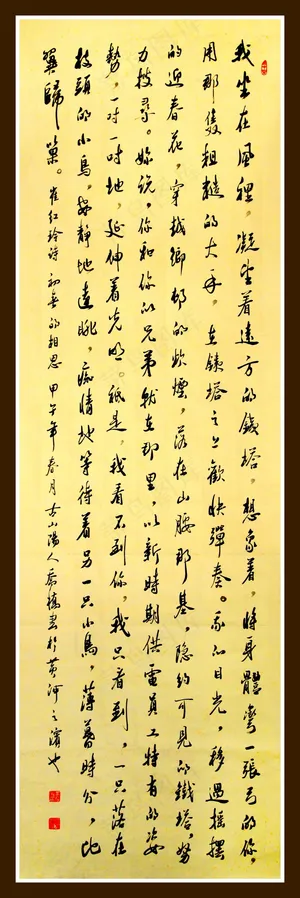 我坐在風裡，凝望着遠方的鐵塔，想象着，將身體彎一張弓的你，
用那雙粗糙的大手，在鐵塔之上歡快彈奏。我的目光，移過摇擺
的迎春花，穿越鄉邨的炊煙，落在山腰那基，隐約可見的鐵塔，努
力搜尋。你說，你和你的兄弟就在那里，以新時期供電員工特有的姿
勢，一吋一吋地，延伸着光明。祗是，我看不到你，我只看到，一只落在
枝頭的小鳥，安静地遠眺，痴情地等待着另一只小鳥，薄暮時分，比
翼歸巢。崔红玲詩 初春的相思 甲午年春月 古山陽人 書於黄河之濱也